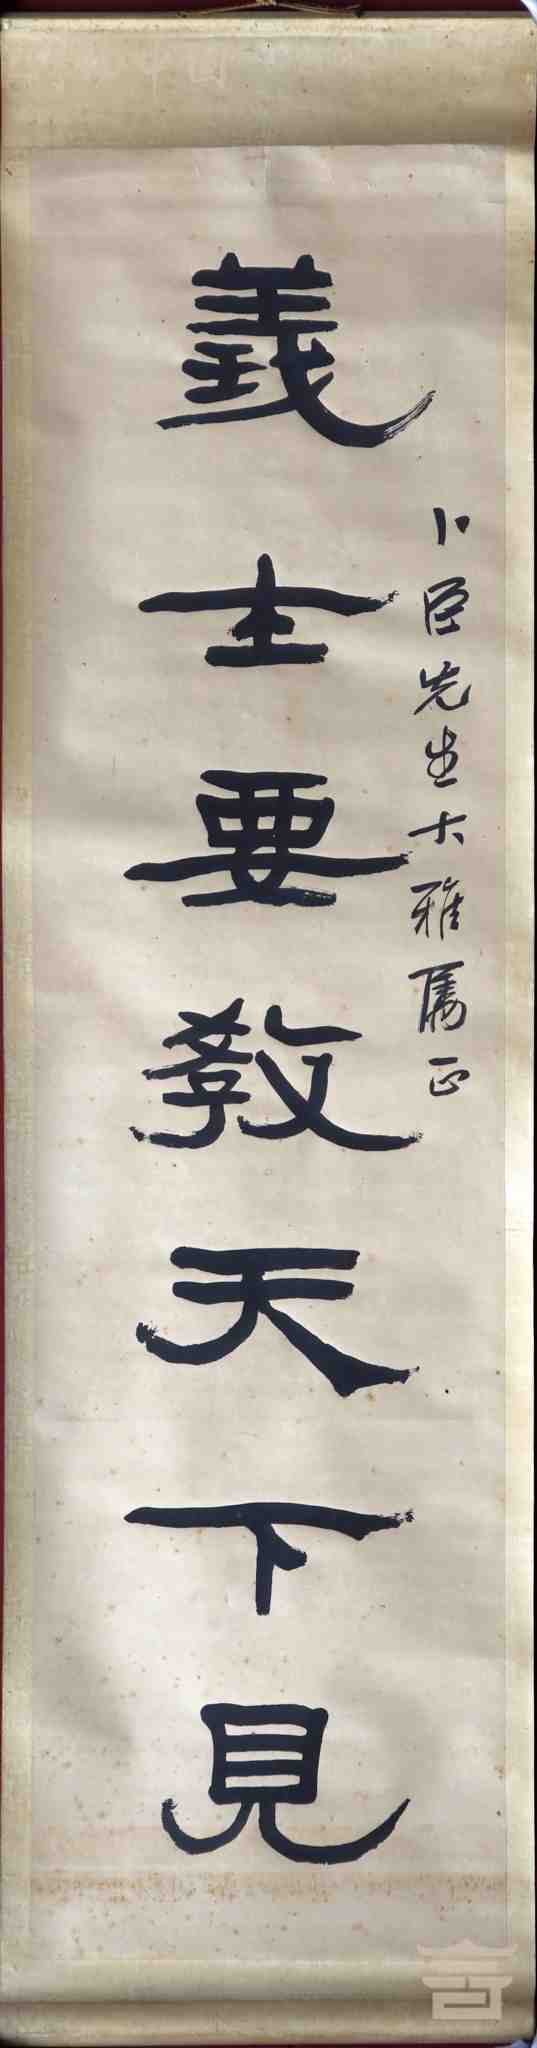 卜臣先生大雅属正
義士要教天下見